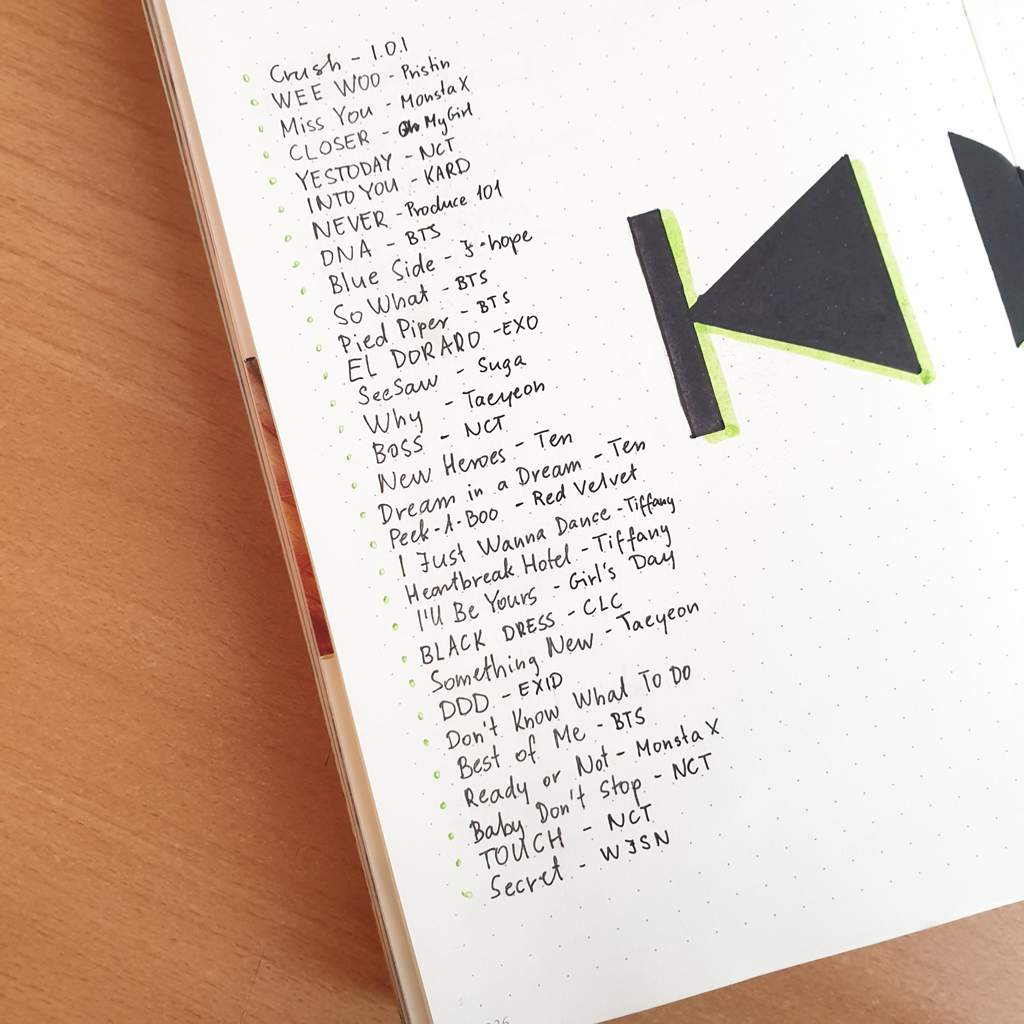 Crush - I.O.I
WEE WOO - Pristin
Miss You - Monsta X
CLOSER - Oh My Girl
YESTODAY - NCT
INTO YOU - KARD
NEVER - Produce 101
DNA - BTS
Blue Side - J-hope
So What - BTS
Pied Piper - BTS
EL DORADO - EXO
SeeSaw - Suga
Why - Taeyeon
BOSS - NCT
New Heroes - Ten
Dream in a Dream - Ten
Peek-A-Boo - Red Velvet
I Just Wanna Dance - Tiffany
Heartbreak Hotel - Tiffany
I'll Be Yours - Girl's Day
BLACK DRESS - CLC
Something New - Taeyeon
DDD - EXID
Don't Know What To Do
Best of Me - BTS
Ready or Not - Monsta X
Baby Don't Stop - NCT
TOUCH - NCT
Secret - WJSN